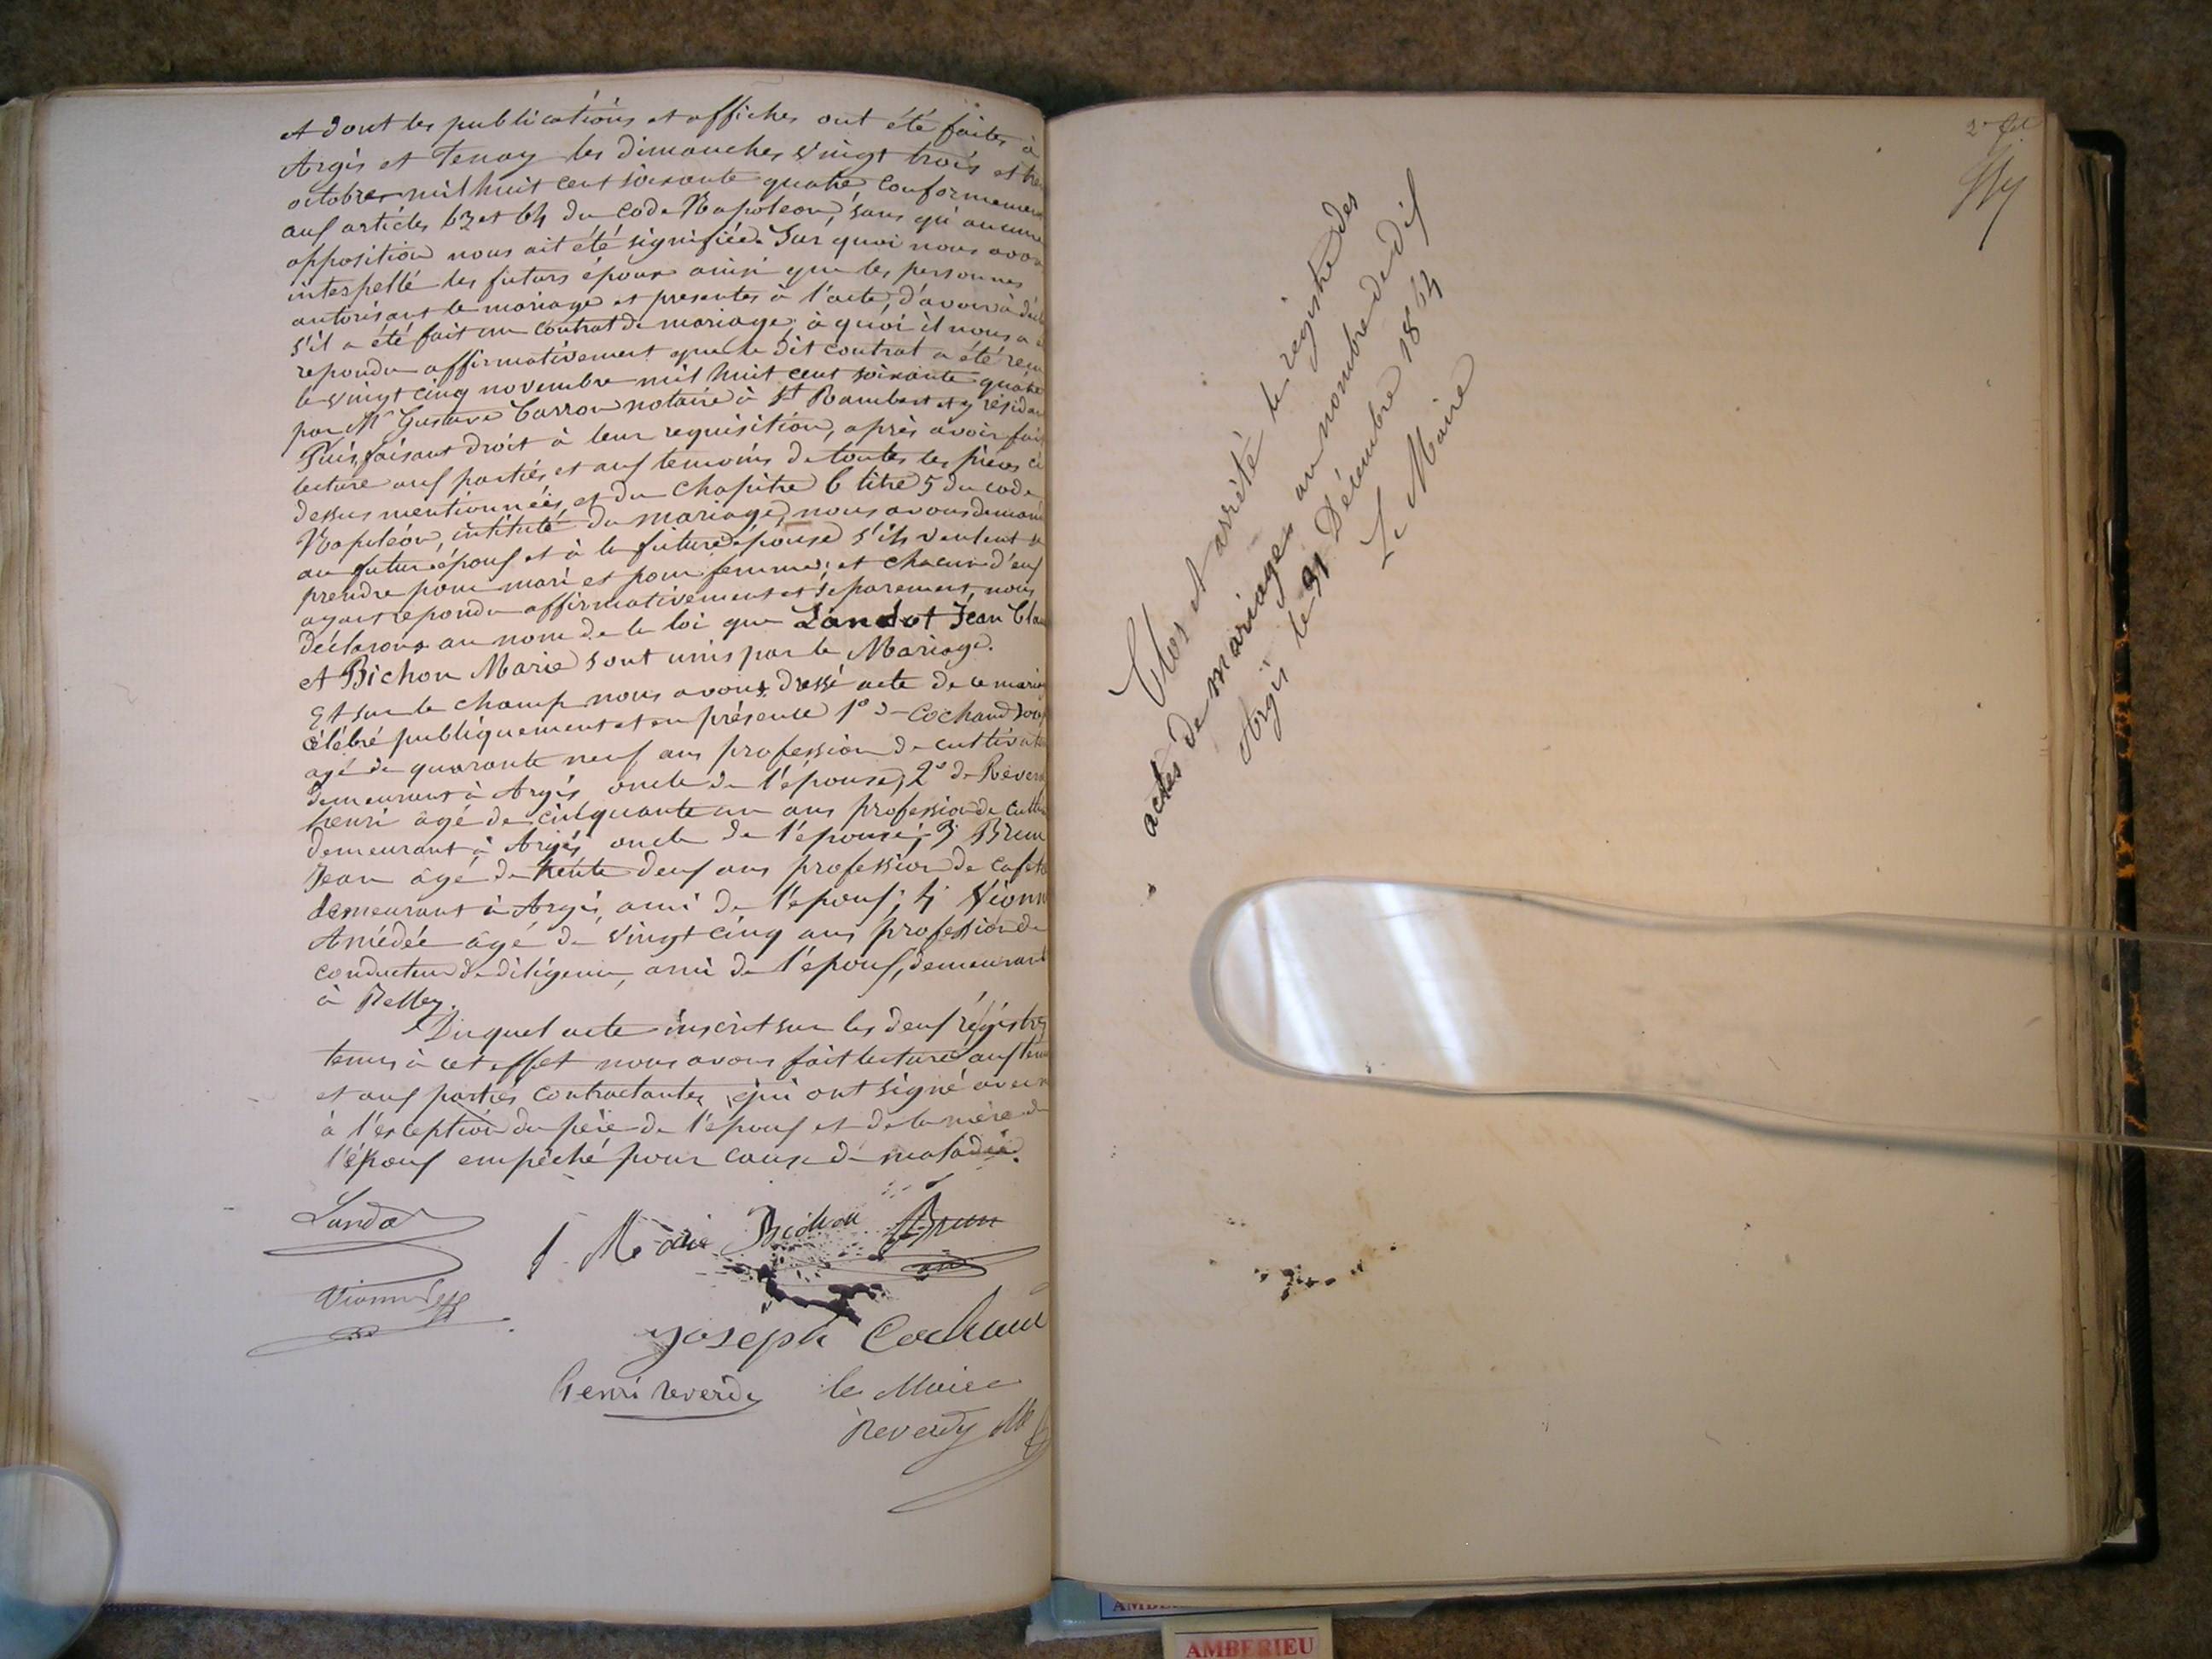 et dont les publications et affiches ont été faites à
Argis et Tenay les dimanches vingt trois et
octobre mil huit cent soixante quatre conformemen
aux articles 63 et 64 du Code Napoleon, sans qu'aucune
opposition nous ait été signifiée. Sur quoi nous avon
interpellé les futurs époux ainsi que les personnes
autorisant le mariage et presentes à l'acte, d'avoir à
s'il a été fait un contrat de mariage, à quoi il nous a
repondu affirmativement que le dit contrat a été reçu
le vingt cinq novembre mil huit cent soixante quatre
par Mr Gustave Carron notaire à St Rambert et y résidan
Puis, faisant droit à leur requisition, après avoir fait
lecture aux parties et aux temoins de toutes les pièces ci
dessus mentionnées, et du chapitre 6 titre 5 du code
Napoléon, intitulé du mariage, nous avons deman
au futur époux et à la future épouse s'ils veulent se
prendre pour mari et pour femme; et chacun d'eux
ayant repondu affirmativement et separement, nous
déclarons au nom de la loi que Landot Jean Clau
et Bichon Marie sont unis par le Mariage.
Et sur le champ nous avons dressé acte de ce maria
célébré publiquement et en présence 1° de Cochand
agé de quarante neuf ans profession de cultivate
demeurant à Argis oncle de l'épouse, 2° de Reverd
henri âgé de cinquante un ans profession de cult
demeurant à Argis oncle de l'épouse; 3 Brun
Jean âgé de trente deux ans profession de cafet
demeurant à Argis ami de l'époux; 4 Vionn
Amédée âgé de vingt cinq ans profession de
conducteur de diligence, ami de l'époux, demeurant
à Belley.
Duquel acte inscrit sur les deux régistres
tenus à cet effet nous avons fait lecture aux tem
et aux parties contractantes, qui ont signé avec n
à l'exception du père de l'époux et de la mère de
l'époux empêché pour cause de maladie.
Landot
Marie Bichon
Brun
Vionnet
Joseph Cochand
henri reverdy
le Maire
Reverdy
Clos et arrêté le registre des
actes de mariages au nombre de dix
Argis le 31 Décembre 1864
Le Maire